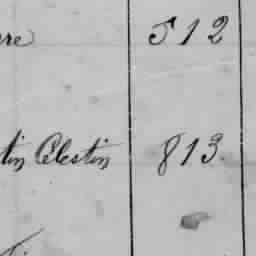 re 512
tin Celestin 813